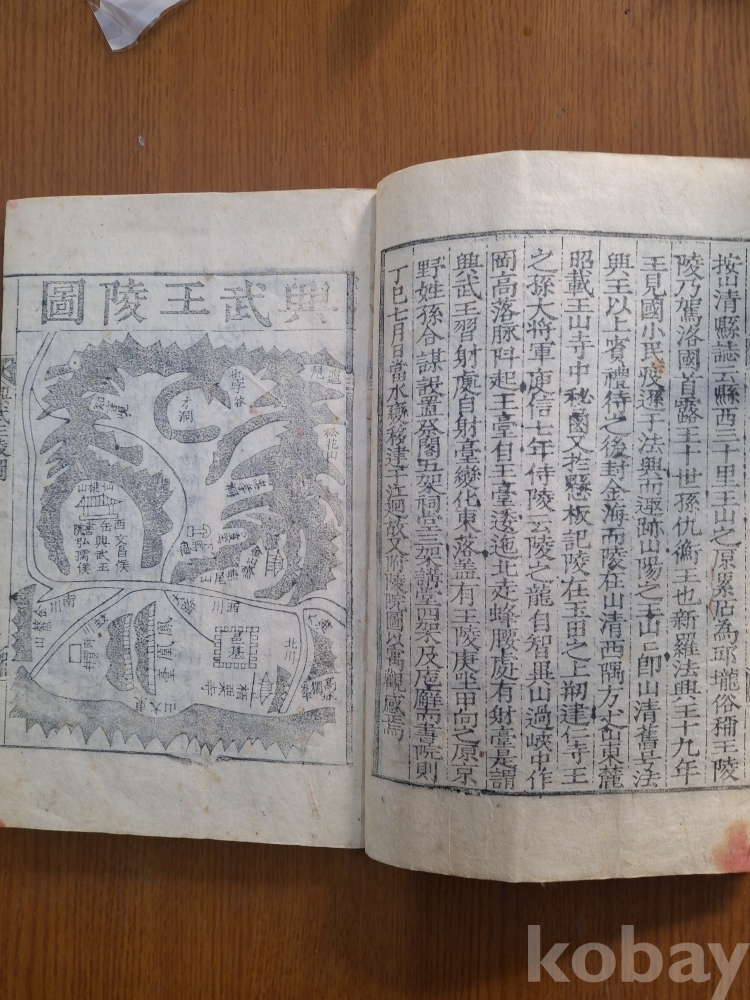 按山清縣誌云縣西三十里王山之原累石為邱壠俗稱王陵
陵乃駕洛國首露王十世孫仇衡王也新羅法興王十九年
王見國小民殘遜于法興而遯跡山陽之王山王山卽山清舊号法
興王以上賓禮待之後封金海而陵在山清西隅方丈山東麓
昭載王山寺中秘圖又於懸板記陵在玉田之上刱建仁寺王
之孫大將軍庾信七年侍陵云陵之龍自智異山過峽中作
岡高落脉斗起王臺自王臺逶迤北走蜂腰處有射臺是謂
興武王習射處自射臺變化東落盖有王陵庚坐甲向之原京
野姓孫合謀設置齋閣五架祠堂三架講堂四架及庖廨而書院則
丁巳七月日當水
移建于江迴故又附陵院圖以寓觀感焉
興武王陵圖
松花山
才洞
西文昌侯
缶興武王
弘儒侯
西川
南川
北川
金鰲山
鳳凰臺
東大山